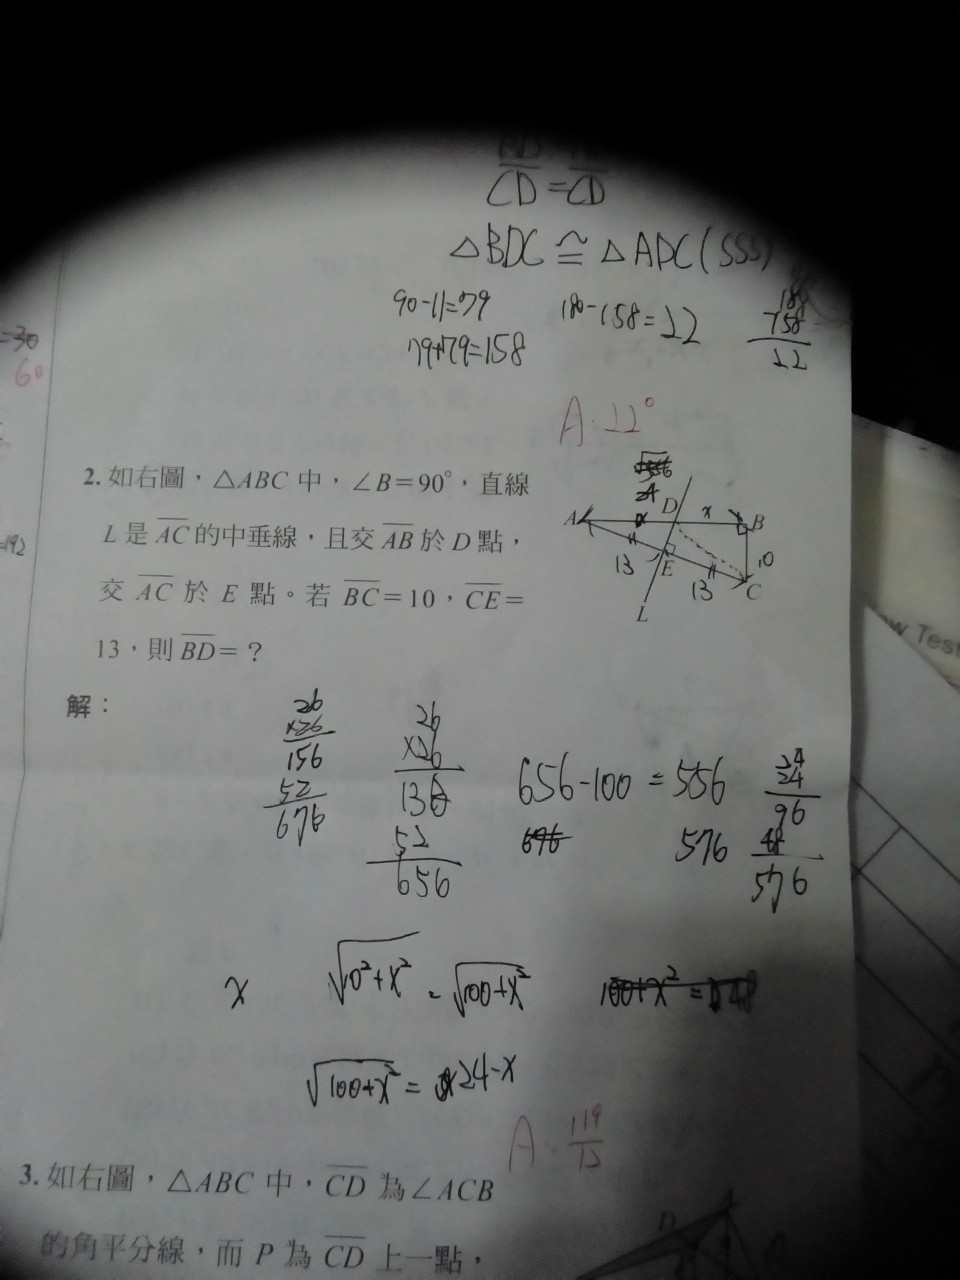 CD = CD
△BDC ≅ △ADC(SSS)
90-11=79
79+79=158
180-158=22
188
158
22
A. 22°
=30
60
=192
2. 如右圖，△ABC 中，∠B=90°，直線
L 是 AC 的中垂線，且交 AB 於 D 點，
交 AC 於 E 點。若 BC=10，CE=
13，則 BD=？
24
A
D
x
B
10
13
E
13
C
L
解：
26
×26
156
52
676
26
×26
136
52
656
656-100 = 556
676
576
24
24
96
48
576
x
√10²+x² = √100+x²
100+x² =
√100+x² = 24-x
A. 119/12
3. 如右圖，△ABC 中，CD 為∠ACB
的角平分線，而 P 為 CD 上一點，
D
A
w Test